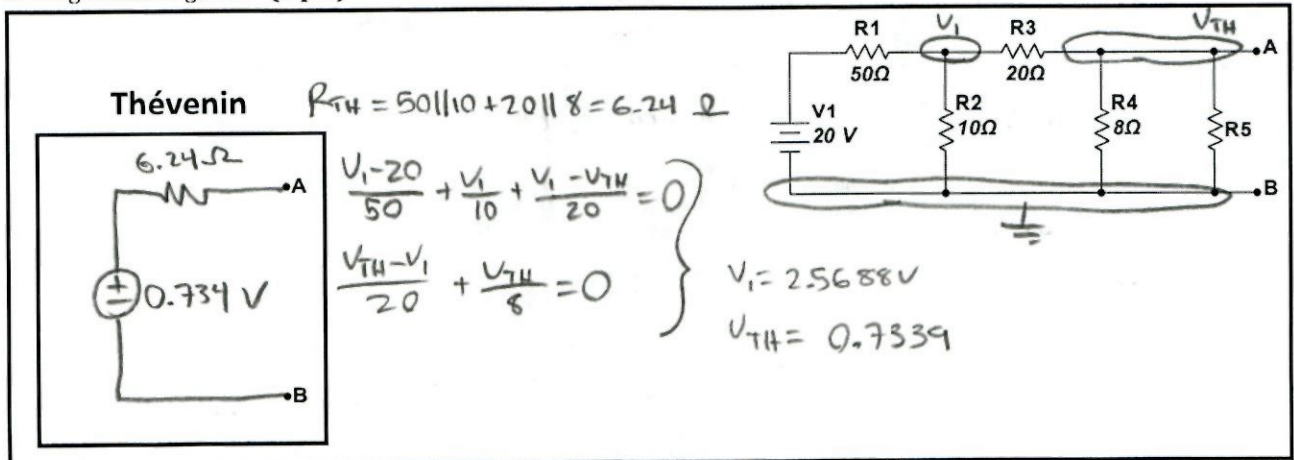 Thévenin
R_TH = 50||10 + 20||8 = 6.24 Ω
6.24 Ω
A
0.734 V
B
V₁-20/50 + V₁/10 + V₁-V_TH/20 = 0
V_TH-V₁/20 + V_TH/8 = 0
V₁ = 2.5688V
V_TH = 0.7339
R1
50Ω
V₁
R3
20Ω
V_TH
A
V1
20 V
R2
10Ω
R4
8Ω
R5
B